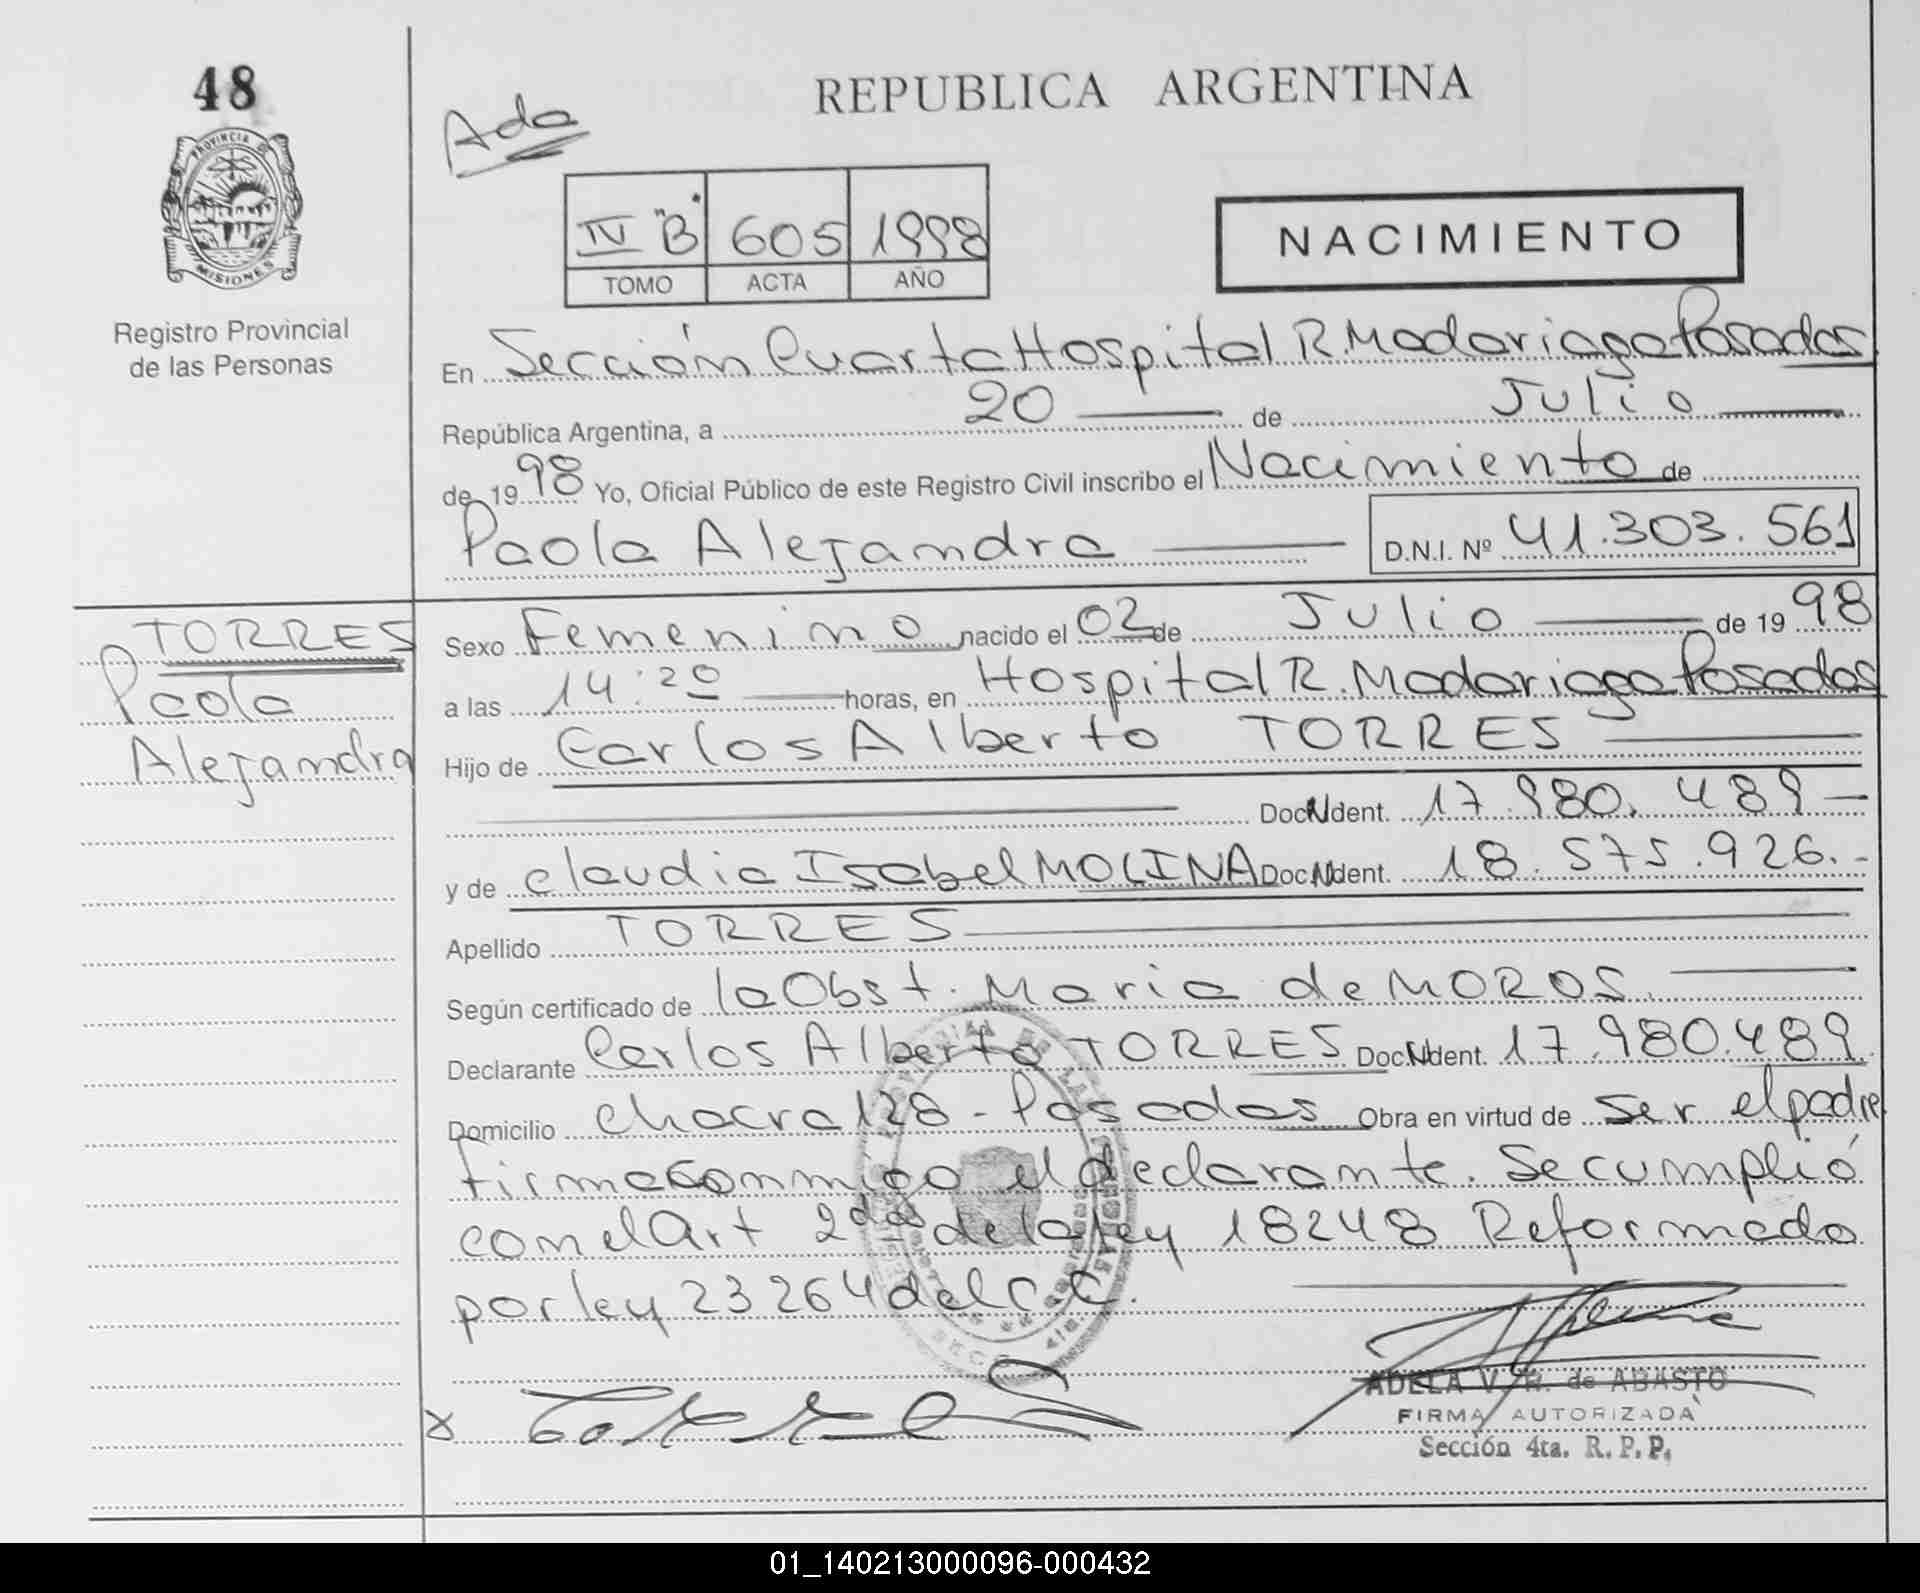 48
PROVINCIA DE
MISIONES
Registro Provincial
de las Personas
Ada
REPUBLICA ARGENTINA
IV "B" 605 1998
TOMO ACTA AÑO
NACIMIENTO
En Sección Cuarta Hospital R. Madariaga Posadas
República Argentina, a 20 de Julio
de 1998 Yo, Oficial Público de este Registro Civil inscribo el Nacimiento de
Paola Alejandra D.N.I. Nº 41.303.561
TORRES
Paola
Alejandra
Sexo Femenino nacido el 02 de Julio de 1998
a las 14:20 horas, en Hospital R. Madariaga Posadas
Hijo de Carlos Alberto TORRES
Doc. Ident. 17.980.489
y de Claudia Isabel MOLINA Doc. Ident. 18.575.926.-
Apellido TORRES
Según certificado de la Obst. Maria de MOROS
Declarante Carlos Alberto TORRES Doc. Ident. 17.980.489
Domicilio Chacra 128 - Posadas Obra en virtud de ser el padre
firma conmigo el declarante. Se cumplió
con el Art 2do de la ley 18248 Reformada
por ley 23264 del C.C.
x
ADELA V. R. de ABASTO
FIRMA AUTORIZADA
Sección 4ta. R. P. P.
01_140213000096-000432